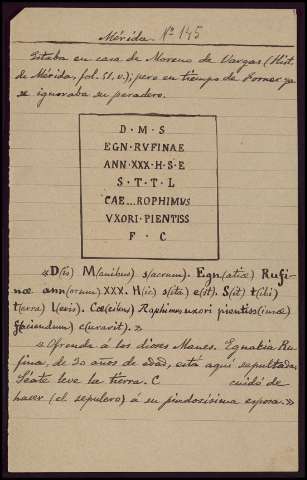 Mérida. Nº 145
Estaba en casa de Moreno de Vargas (Hist.
de Mérida, fol. 51, v.); pero en tiempo de Forner ya
se ignoraba su paradero.
D · M · S
EGN · RVFINAE
ANN · XXX · H · S · E
S · T · T · L
CAE... ROPHIMVS
VXORI · PIENTISS
F · C
«D(is) M(anibus) s(acrum). Egn(atiae) Rufi-
nae ann(orum) XXX. H(ic) s(ita) e(st). S(it) t(ibi)
t(erra) l(evis). Cae(cilius) Rophimus uxori pientiss(imae)
f(aciendum) c(uravit).»
«Ofrenda á los dioses Manes. Egnatia Ru-
fina, de 30 años de edad, está aquí sepultada.
Séate leve la tierra. C cuidó de
hacer (el sepulcro) á su piadosísima esposa.»